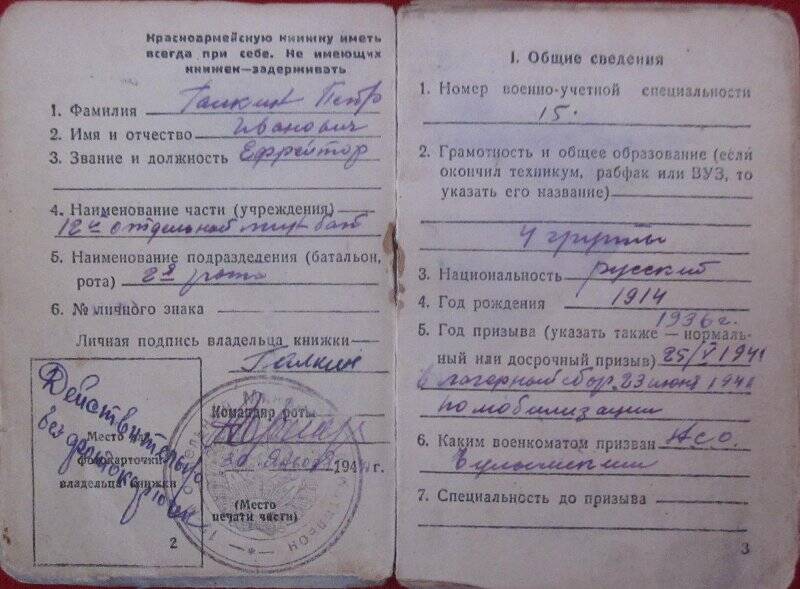 Красноармейскую книжку иметь
всегда при себе. Не имеющих
книжек—задерживать
1. Фамилия Галкин Петр
2. Имя и отчество Иванович
3. Звание и должность Ефрейтор
4. Наименование части (учреждения)
12й отдельной мин бат
5. Наименование подразделения (батальон,
рота) 2я рота
6. № личного знака
Личная подпись владельца книжки
Галкин
Командир роты
30 января 194 г.
(Место
печати части)
Место для
фотокарточки
владельца книжки
Действительно
без фотокарточки
2
I. Общие сведения
1. Номер военно-учетной специальности
15.
2. Грамотность и общее образование (если
окончил техникум, рабфак или ВУЗ, то
указать его название)
4 группы
3. Национальность русский
4. Год рождения 1914
1936 г.
5. Год призыва (указать также — нормаль-
ный или досрочный призыв) 25/V 1941
в лагерный сбор. 23 июня 1941
по мобилизации
6. Каким военкоматом призван НСО.
Чулымским
7. Специальность до призыва
3